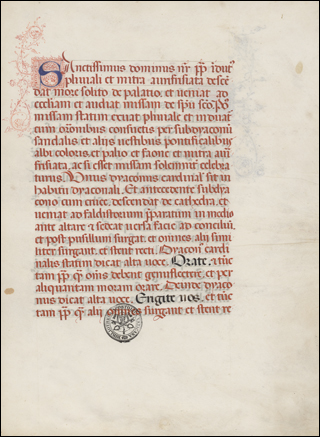 Sanctissimus dominus nr̄ pp̄ indut᷒
pluviali et mitra aurifrisiata descē
dat more solito de palatio, et veniat ad
eccliam et audiat missam de spū scō. Po
missam statim exuat pluviale et induat
cum orōnibus consuetis per subdyaconū
sandalia et alijs vestibus pontificalibus
albi coloris, et palio et fanone et mitra auri
frisiata, ac si esset missam solemnit᷒ celebra
turus. Unus dyaconus cardinal᷒ sit in
habitu dyaconali. Et antecedente subdya
cono cum cruce, descendat de cathedra, et
veniat ad faldistorium pparatum in medio
ante altare et sedeat versa facie ad conciliū,
et post pusillum surgat, et omnes alij simi
liter surgant, et stent recti. Dyacon᷒ cardi
nalis statim dicat alta voce. Orate, et tūc
tam pp̄ q̄ om̄s debent genuflectere, et per
aliquantam moram orare. Deinde dyaco
nus dicat alta voce. Erigite vos, et tūc
tam pp̄ q̄ alij omnes surgant et stent re